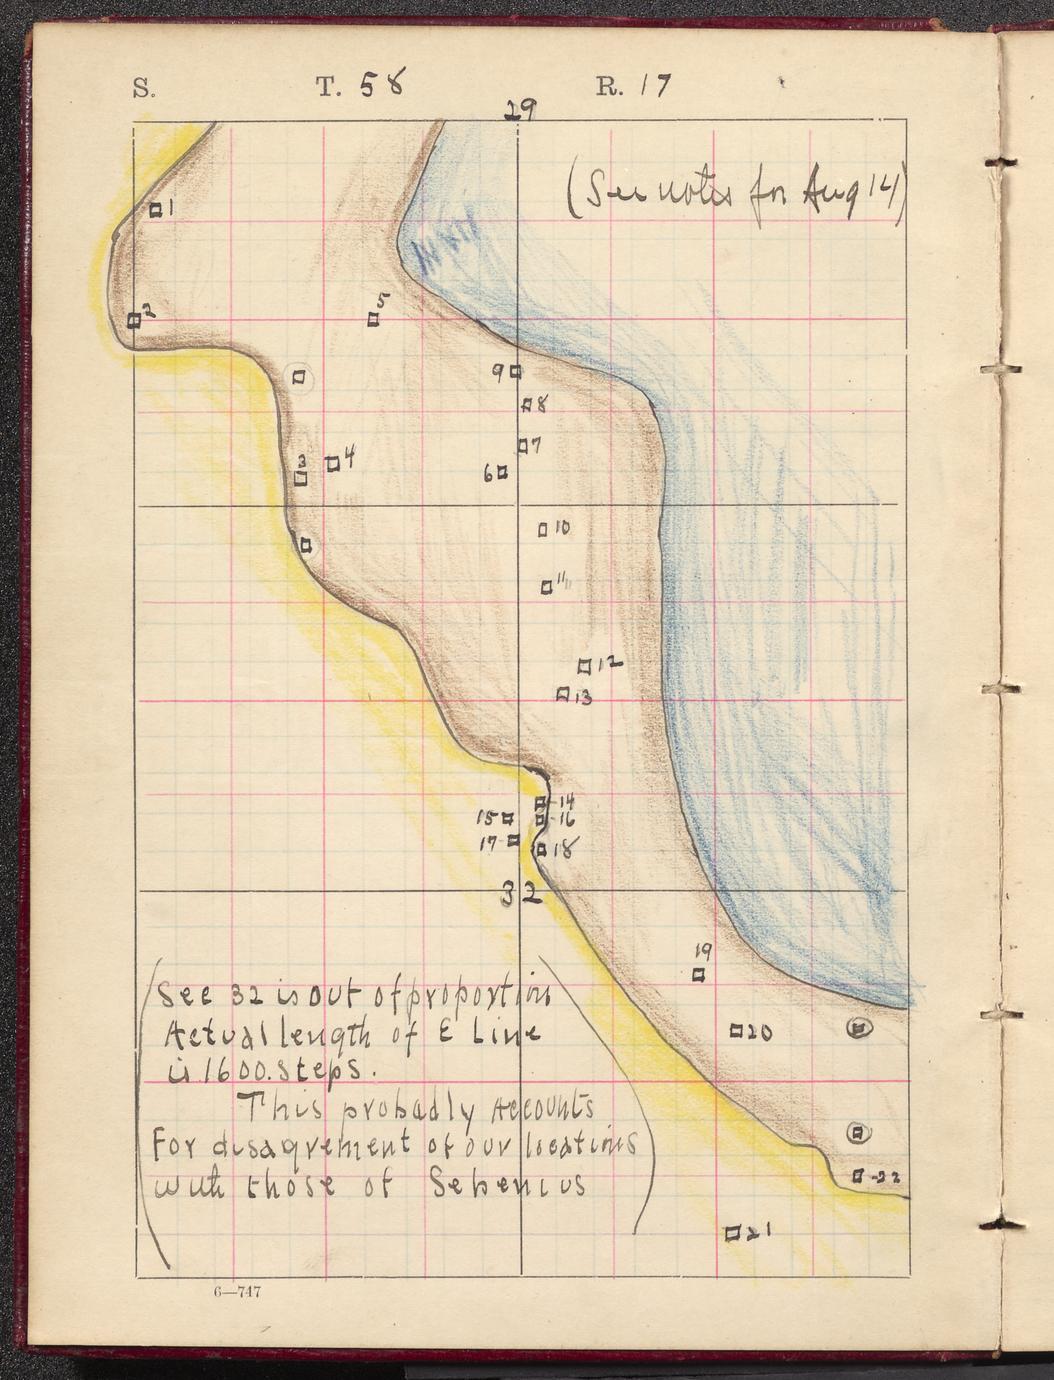 S. T. 58 R. 17
29
(See notes for Aug 14)
1
2
5
9
8
7
3
4
6
10
11
12
13
14
15
16
17
18
32
19
(See 32 is out of proportion
Actual length of E Line
is 1600. steps.
20
This probadly Accounts
For disagrement of our locations
with those of Sebenius
22
21
6—747